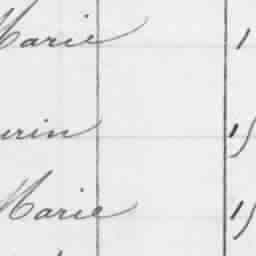 Marie 1
urin 15
Marie 15